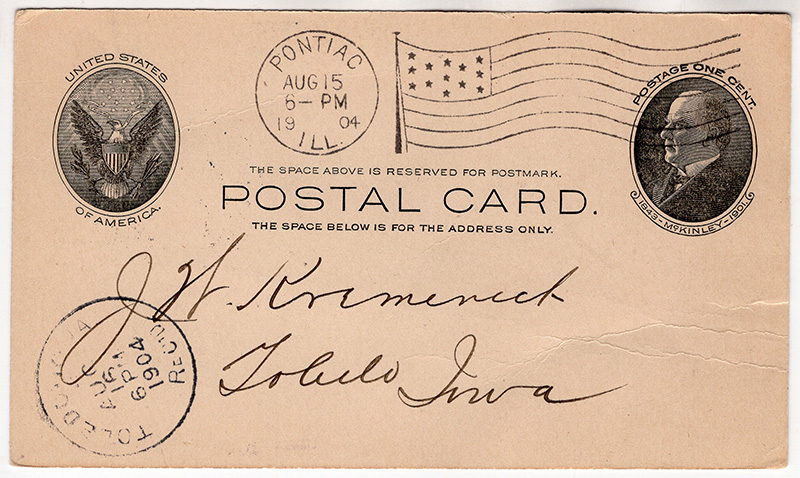 UNITED STATES
OF AMERICA.
PONTIAC
AUG 15
6-PM
1904
ILL.
POSTAGE ONE CENT.
1843-McKINLEY-1901.
THE SPACE ABOVE IS RESERVED FOR POSTMARK.
POSTAL CARD.
THE SPACE BELOW IS FOR THE ADDRESS ONLY.
J. W.
Toledo Iowa
TOLEDO IOWA
AUG
6 PM
1904
REC'D